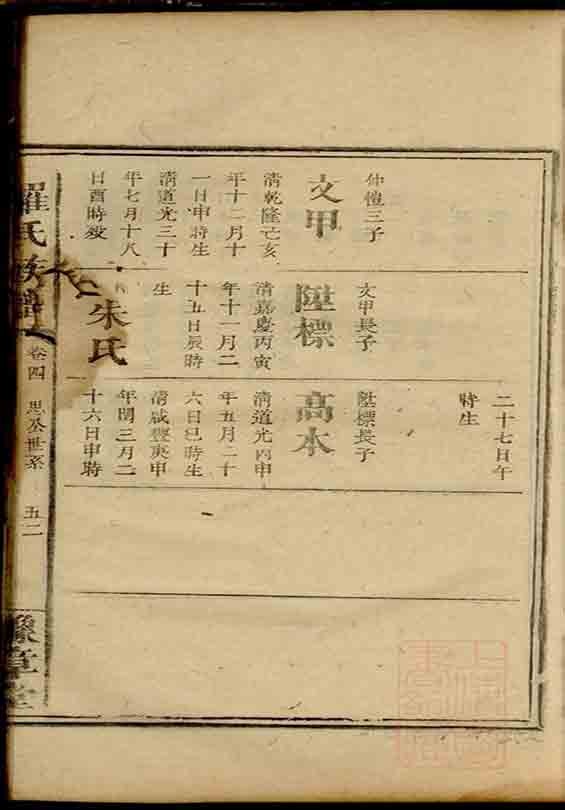 仲愷三子
文甲
清乾隆乙亥
年十二月十
一日申時生
清道光三十
年七月十八
日酉時歿
文甲長子
陞標
清嘉慶丙寅
年十一月二
十五日辰時
生
朱氏
二十七日午
時生
陞標長子
高本
清道光丙申
年五月二十
六日巳時生
清咸豐庚申
年閏三月二
十六日申時
羅氏族譜
卷四
思公世系
五二
豫章堂